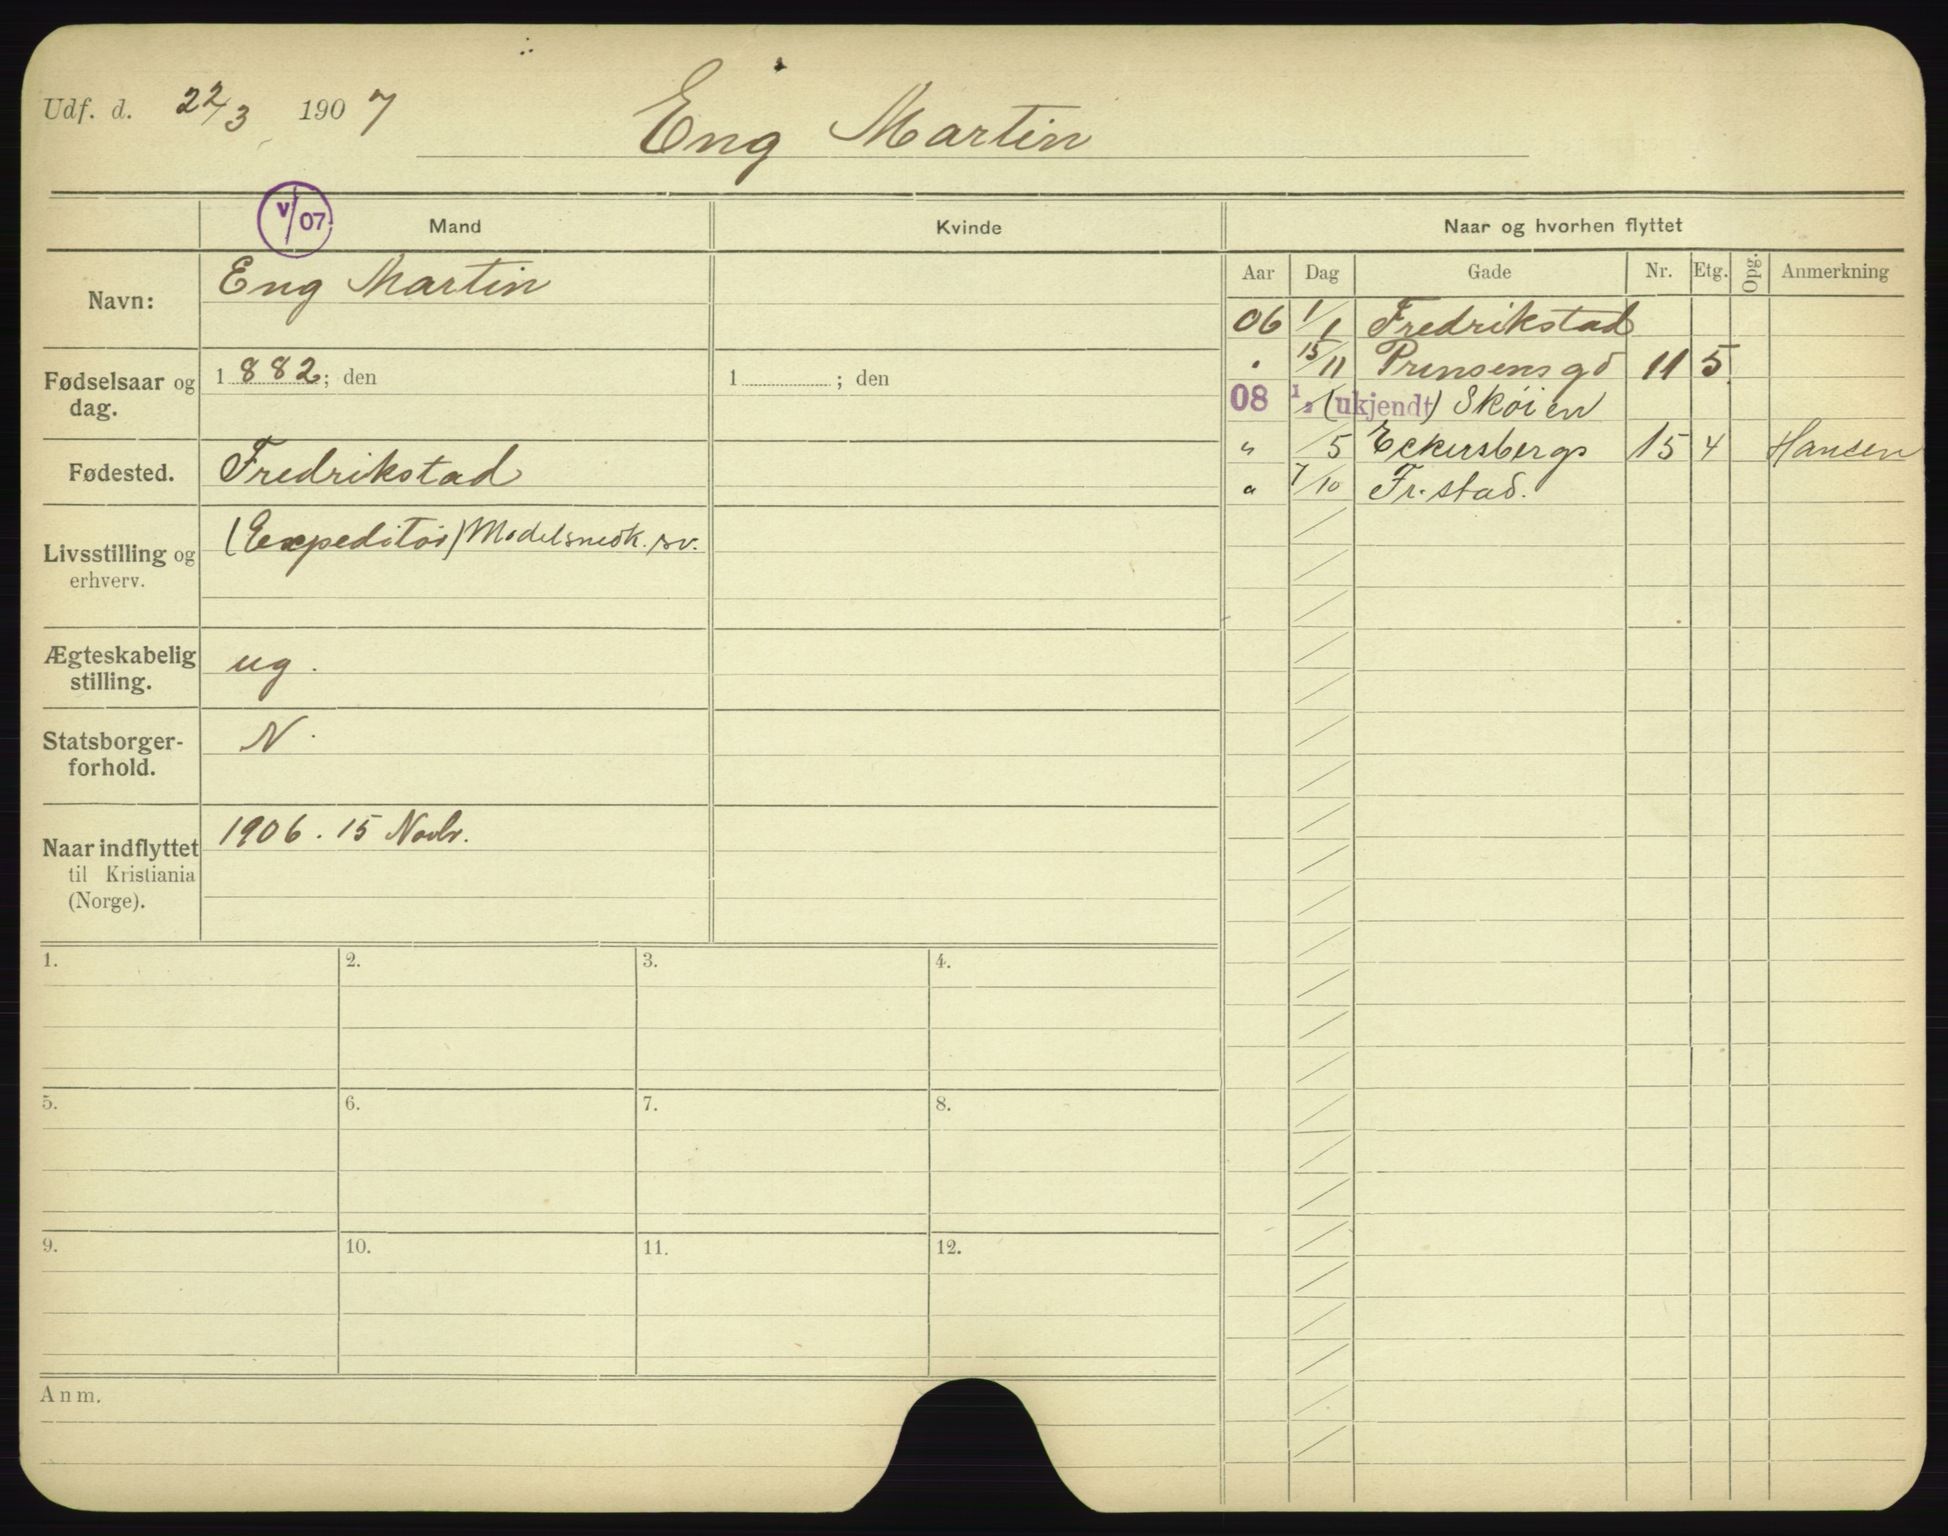 Udf. d. 22/3 1907 Eng Martin
V/07 Mand Kvinde Naar og hvorhen flyttet
Aar Dag Gade Nr. Etg. Opg. Anmerkning
Navn: Eng Martin
Fødselsaar og dag. 1882; den 1 ; den
Fødested. Fredrikstad
Livsstilling og erhverv. (Expeditør) Modelsnedk. sv.
Ægteskabelig stilling. ug.
Statsborger-forhold. N.
Naar indflyttet til Kristiania (Norge). 1906. 15 Novbr.
06 1/1 Fredrikstad
" 15/11 Prinsensgd 11 5
08 1/2 (ukjendt) Skøien
" /5 Eckersbergs 15 4 Hansen
" 7/10 Fr.stad.
1. 2. 3. 4.
5. 6. 7. 8.
9. 10. 11. 12.
Anm.